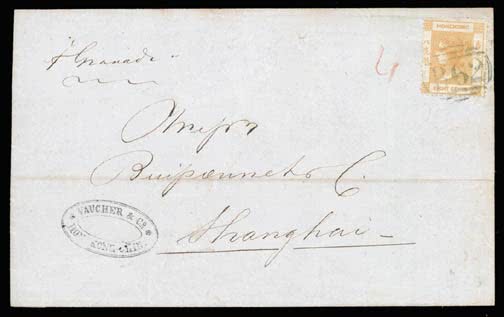 p Granada
4
HONGKONG
B62
EIGHT CENTS
Messrs
Buissonnet & C.
Shanghai
* VAUCHER & Co *
HONG KONG CHINA